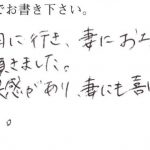 でお書き下さい。
に行き、妻にお土
頂きました。
感があり、妻にも喜
。